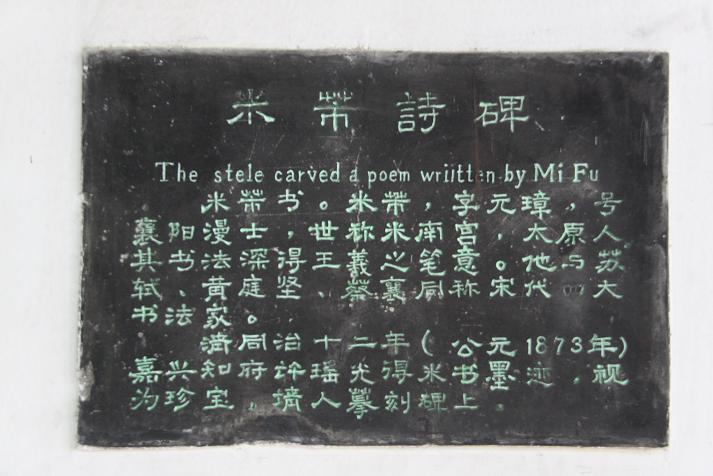 米芾詩碑
The stele carved a poem wriitten by Mi Fu
米芾书。米芾，字元璋，号
襄阳漫士，世称米南宫，太原人。
其书法深得王羲之笔意。他与苏
轼、黄庭坚、蔡襄同称宋代大
书法家。
清同治十二年(公元1873年)
嘉兴知府许瑶光得米书墨迹，视
为珍宝，请人摹刻碑上。